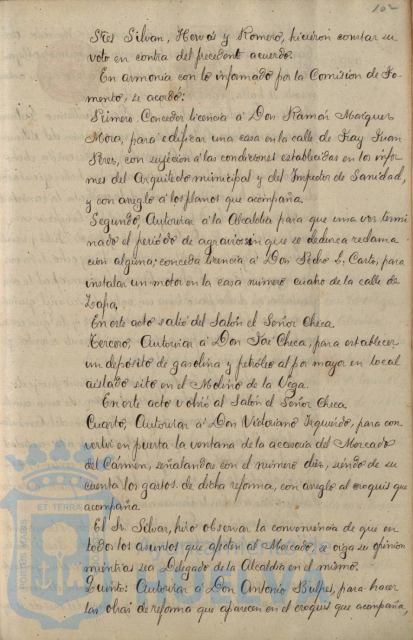 102
Stes Silvan, Hervás y Romero, hicieron constar su
voto en contra del precedente acuerdo.
En armonía con lo informado por la Comisión de Fo-
mento, se acordó:
Primero. Conceder licencia á Don Ramón Marquez
Mora, para edificar una casa en la calle de Fray Juan
Peres, con sujeción á las condiciones establecidas en los infor-
mes del Arquitecto municipal y del Inspector de Sanidad,
y con arreglo á los planos que acompaña.
Segundo, Autorizar á la Alcaldia para que una vez termi-
nado el periodo de agravios sin que se deduzca reclama
ción alguna; conceda licencia á Don Pedro L. para
instalar un motor en la casa número cuatro de la calle de
Zapa,
En este acto salió del Salón el Señor Checa.
Tercero, Autorizar á Don José Checa, para establecer
un depósito de gasolina y petróleo al por mayor en local
aislado sito en el Molino de la Vega.
En este acto volvió al Salón el Señor Checa.
Cuarto, Autorizar á Don Victoriano Izquierdo, para con-
vertir en puerta la ventana de la accesoria del Mercado
del Cármen, señalandos con el número diez, siendo de su
cuenta los gastos de dicha reforma, con arreglo al croquis que
acompaña.
El Sr. Silvan, hizo observar la conveniencia de que en
todos los asuntos que afecten al Mercado, se oiga su opinión
mientras sea Delegado de la Alcaldia en el mismo.
Quinto: Autorizar á Don Antonio para hacer
las obras de reforma que aparecen en el croquis que acompaña,
PORTUS MARIS
ET TERRÆ
HUELVA